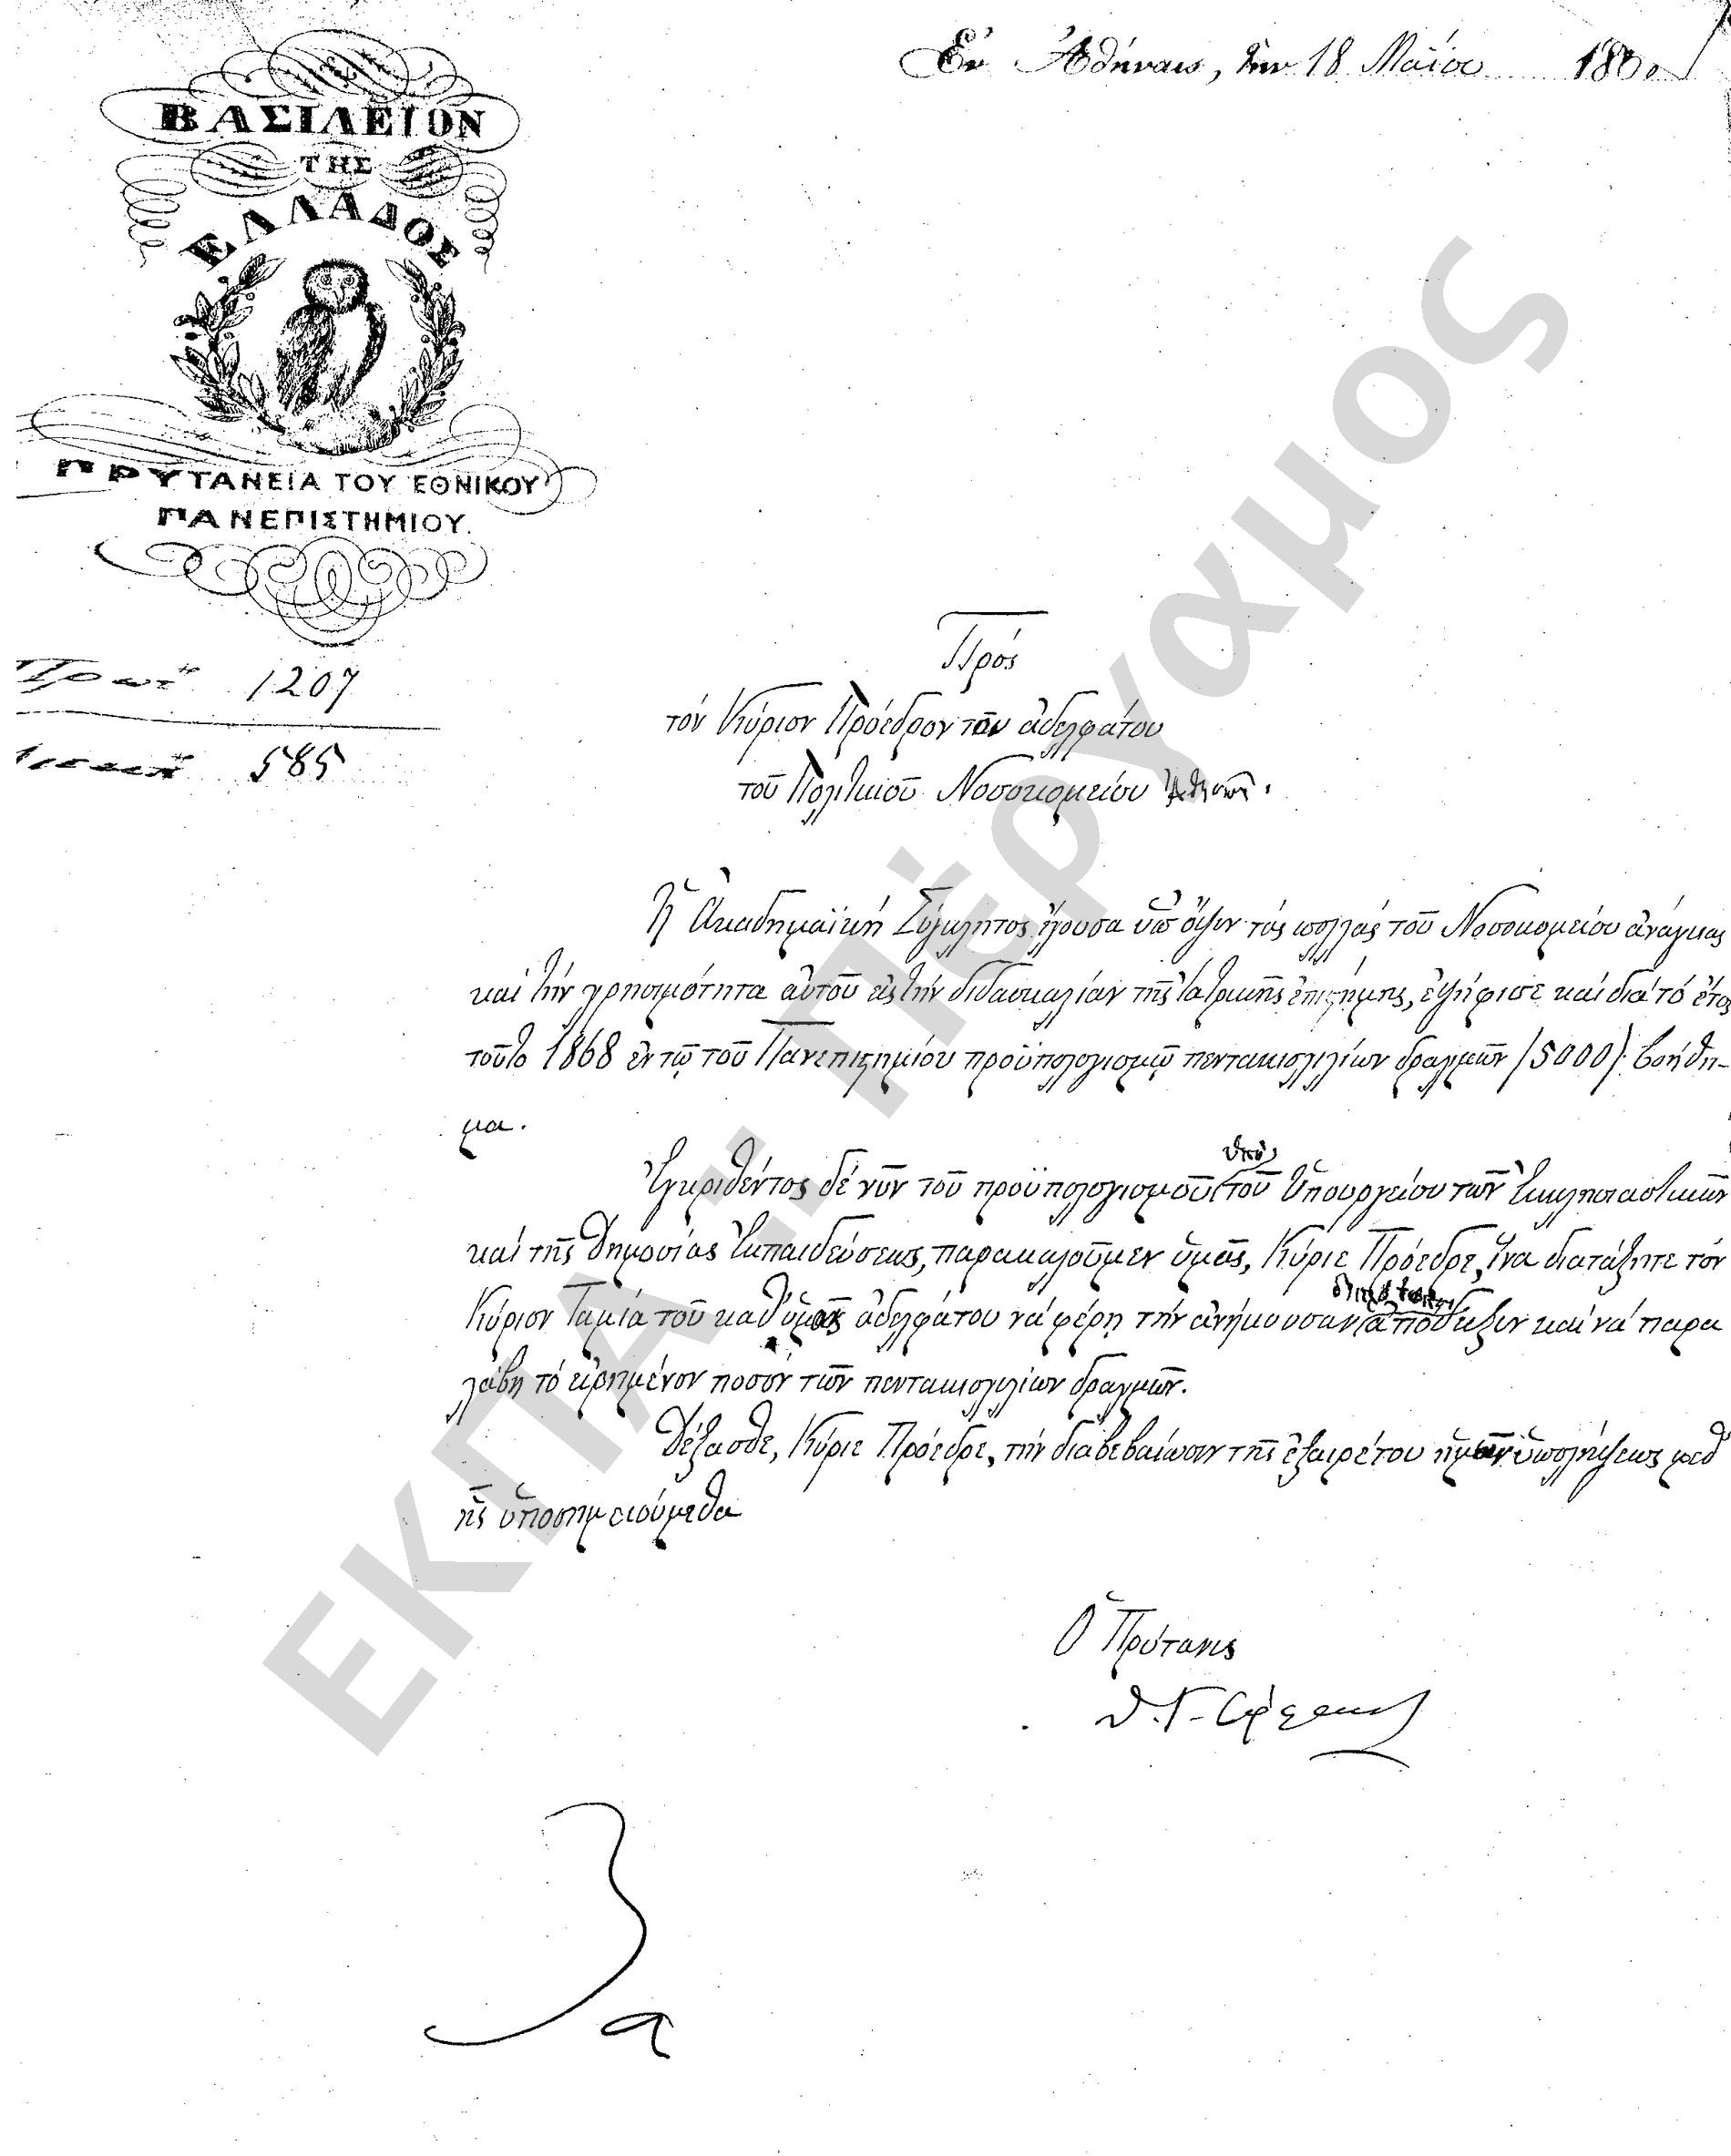 Ἐν Ἀθήναις, τὴν 18 Μαΐου
ΒΑΣΙΛΕΙΟΝ
ΤΗΣ
ΕΛΛΑΔΟΣ
ΠΡΥΤΑΝΕΙΑ ΤΟΥ ΕΘΝΙΚΟΥ
ΠΑΝΕΠΙΣΤΗΜΙΟΥ.
Πρωτ. 1207
585
Πρός
τόν Κύριον Πρόεδρον τοῦ ἀδελφάτου
τοῦ Πολιτικοῦ Νοσοκομείου Ἀθηνῶν.
Ἡ Ἀκαδημαϊκή Σύγκλητος ἔχουσα ὑπ' ὄψιν τάς πολλάς τοῦ Νοσοκομείου ἀνάγκας
καί τήν χρησιμότητα αὐτοῦ εἰς τήν διδασκαλίαν τῆς ἰατρικῆς ἐπιστήμης, ἐψήφισε καί διά τό ἔτος
τοῦτο 1868 ἐν τῷ τοῦ Πανεπιστημίου προϋπολογισμῷ πεντακισχιλίων δραχμῶν (5000) βοήθη-
μα.
Ἐγκριθέντος δέ νῦν τοῦ προϋπολογισμοῦ ὑπό τοῦ Ὑπουργείου τῶν Ἐκκλησιαστικῶν
καί τῆς Δημοσίας Ἐκπαιδεύσεως, παρακαλοῦμεν ὑμᾶς, Κύριε Πρόεδρε, ἵνα διατάξητε τόν
Κύριον Ταμία τοῦ καθ' ὑμᾶς ἀδελφάτου νά φέρῃ τήν ἀνήκουσαν ἀπόδειξιν καί νά παρα
λάβῃ τό εἰρημένον ποσόν τῶν πεντακισχιλίων δραχμῶν.
Δέξασθε, Κύριε Πρόεδρε, τήν διαβεβαίωσιν τῆς ἐξαιρέτου ἡμῶν ὑπολήψεως μεθ'
ἧς ὑποσημειούμεθα
Ὁ Πρύτανις
ΕΚΠΑ: Πέργαμος